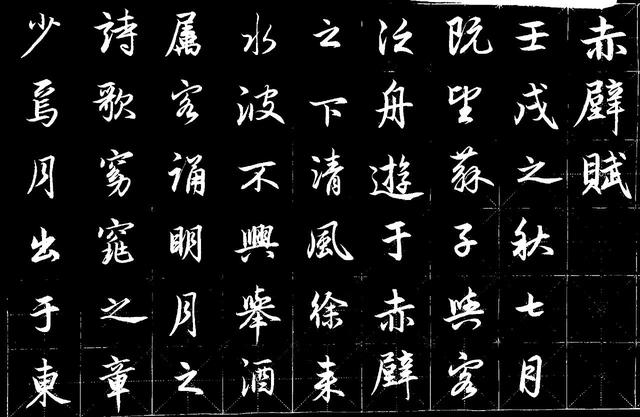 赤壁賦
壬戌之秋七月
既望蘇子與客
泛舟遊于赤壁
之下清風徐来
水波不興舉酒
属客誦明月之
詩歌窈窕之章
少焉月出于東